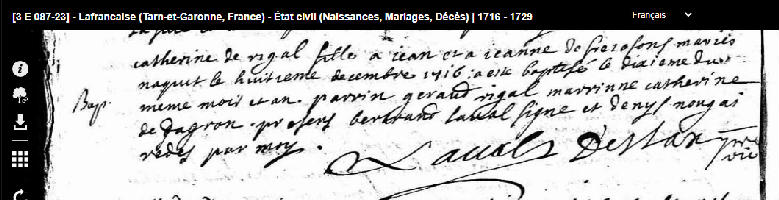 [3 E 087-23] - Lafrancaise (Tarn-et-Garonne, France) - État civil (Naissances, Mariages, Décès) | 1716 - 1729
Français
catherine de rigal fille a jean et a jeanne de maries
naquit le huitieme decembre 1716 a esté baptisé le dixieme du
Bap.
meme mois et an. parrin geraud rigal marrinne catherine
de gagron. presens bertrand laval signe et denys
par moy.
Laval Destan